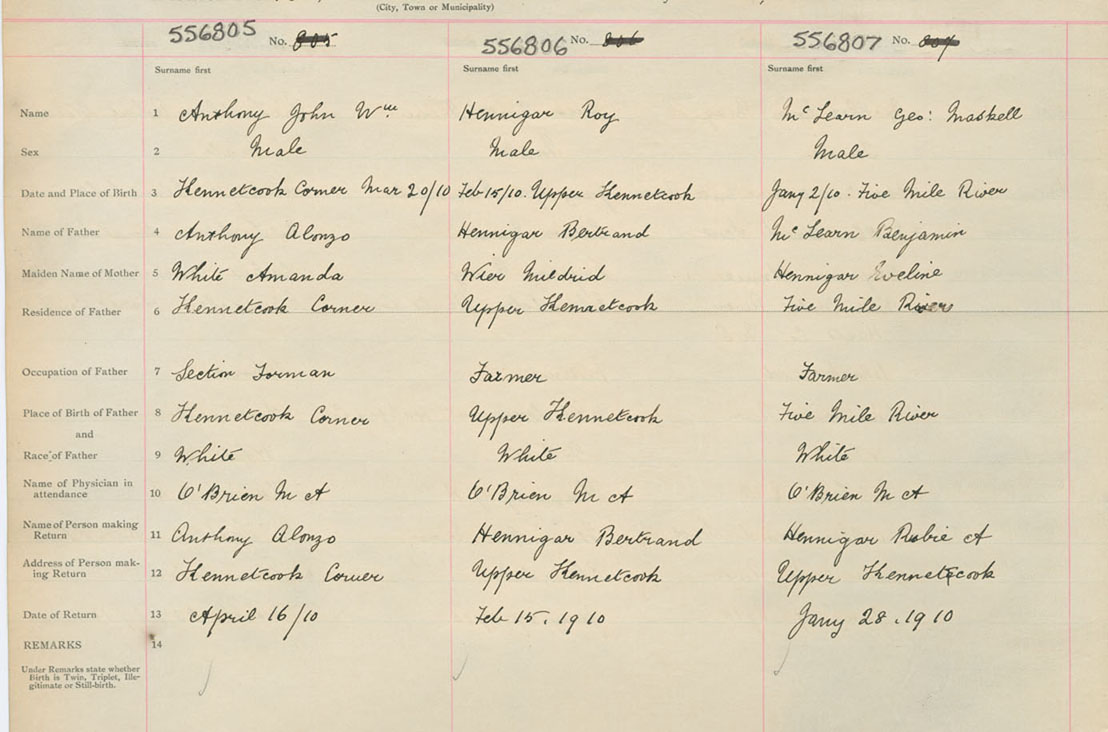 (City, Town or Municipality)
556805 No. 556806 No. 556807 No.
Surname first Surname first Surname first
Name 1 Anthony John Wm Hennigar Roy Mc Learn Geo: Maskell
Sex 2 Male Male Male
Date and Place of Birth 3 Kennetcook Corner Mar 20/10 Feb 15/10. Upper Kennetcook Jany 2/10 - Five Mile River
Name of Father 4 Anthony Alonzo Hennigar Bertrand Mc Learn Benjamin
Maiden Name of Mother 5 White Amanda Wier Mildrid Hennigar Eveline
Residence of Father 6 Kennetcook Corner Upper Kennetcook Five Mile River
Occupation of Father 7 Section Forman Farmer Farmer
Place of Birth of Father 8 Kennetcook Corner Upper Kennetcook Five Mile River
and
Race of Father 9 White White White
Name of Physician in
attendance 10 O'Brien M A O'Brien M A O'Brien M A
Name of Person making
Return 11 Anthony Alonzo Hennigar Bertrand Hennigar Robie A
Address of Person mak-
ing Return 12 Kennetcook Corner Upper Kennetcook Upper Kennetcook
Date of Return 13 April 16/10 Feb 15. 1910 Jany 28. 1910
REMARKS 14
Under Remarks state whether
Birth is Twin, Triplet, Ille-
gitimate or Still-birth.